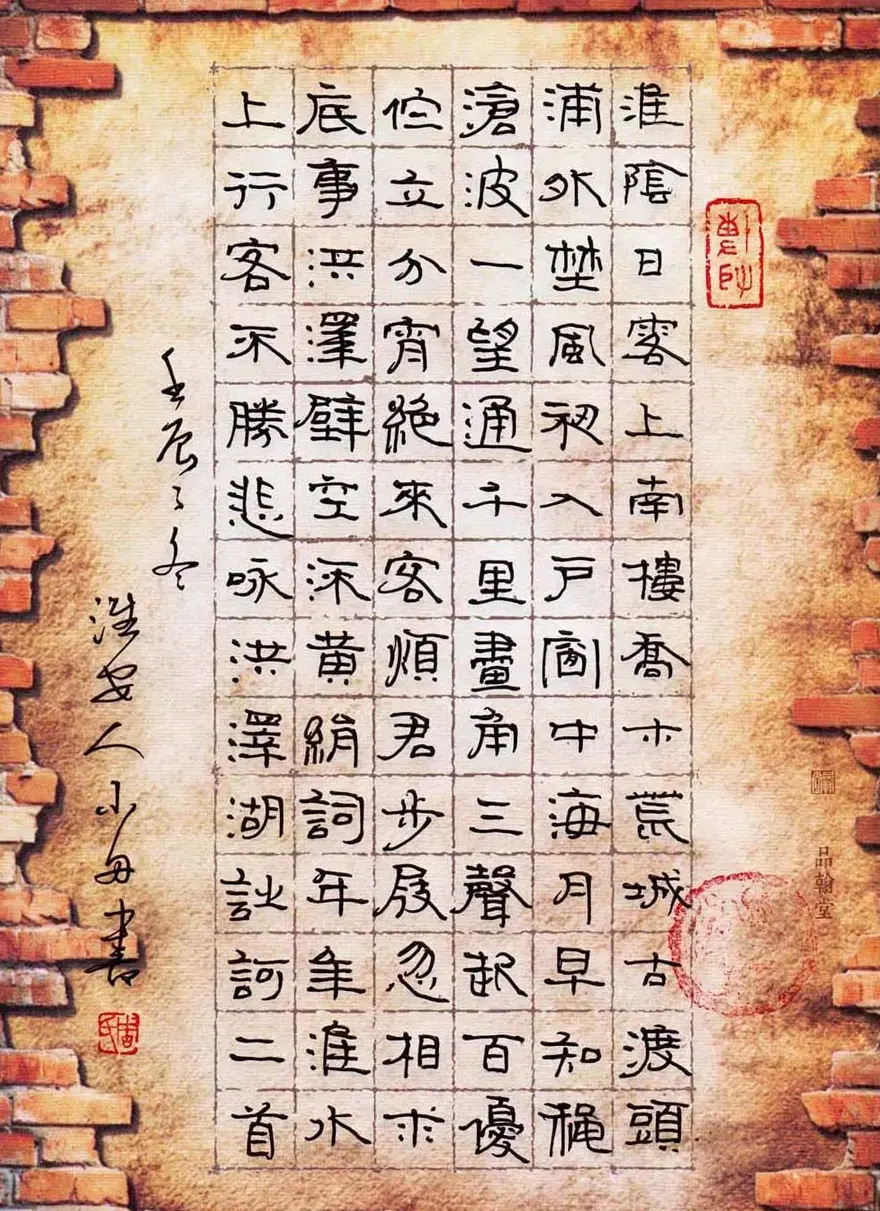 淮陰日落上南樓喬木荒城古渡頭
浦外埜風初入戶窗中海月早知穐
滄波一望通千里畫角三聲起百優
伫立分宵絕來客煩君步屐忽相求
底事洪澤壁空黃絹詞年年淮水
上行客不勝悲咏洪澤湖訶二首
壬辰之冬
淮安人小書
品翰堂